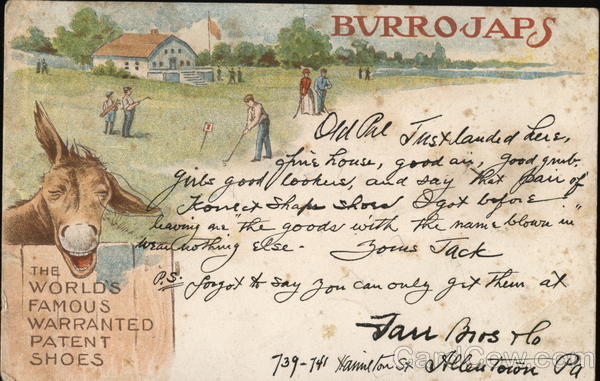 BURROJAPS
Old Pal Just landed here,
fine house, good air, good grub,
girls good lookers, and say that pair of
Korrect Shape shoes I got before
leaving are "the goods with the name blown in"
wear nothing else.
Yours Jack
P.S. forgot to say you can only get them at
Farr Bros & Co
739-741 Hamilton St Allentown Pa
THE
WORLD'S
FAMOUS
WARRANTED
PATENT
SHOES
CardCow.com